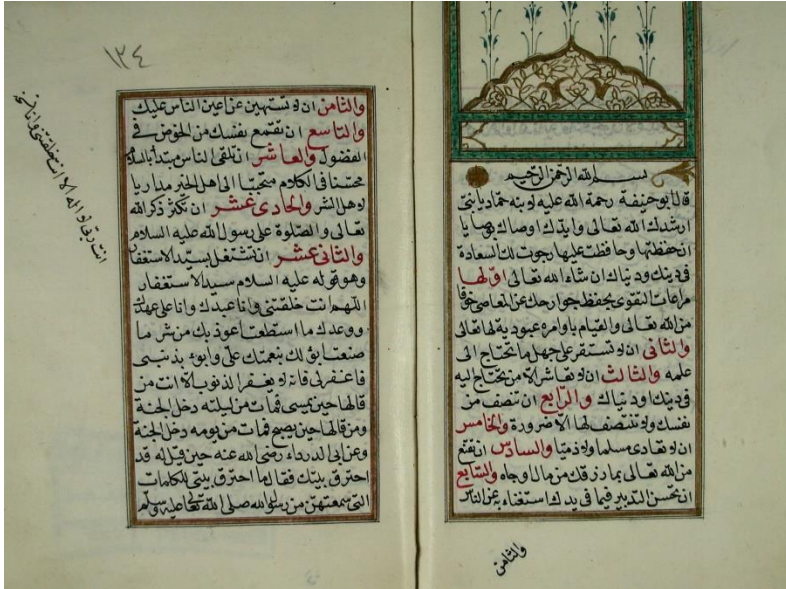 بسم الله الرحمن الرحيم
قال ابو حنيفة رحمة الله عليه لابنه حماد يا بنى
ارشدك الله تعالى وايدك اوصاك بوصايا
ان حفظتها وحافظت عليها رجوت لك السعادة
فى دينك ودنياك ان شاء الله تعالى اولها
مراعات التقوى بحفظ جوارحك عن المعاصى خوفا
من الله تعالى والقيام باوامره عبودية له تعالى
والثانى ان لا تستقر على جهل ما تحتاج الى
علمه والثالث ان لا تعاشر الا من تحتاج اليه
فى دينك ودنياك والرابع ان تنصف من
نفسك ولا تنتصف لها الا ضرورة والخامس
ان لا تعادى مسلما ولا ذميا والسادس ان تقنع
من الله تعالى بما رزقك من مال وجاه والسابع
ان تحسن التدبير فيما فى يدك استغناء به عن الناس
والثامن
١٢٤
والثامن ان لا تستهين عن اعين الناس عليك
والتاسع ان تقمع نفسك من الخوض فى
الفضول والعاشر ان تلقى الناس مبتدأ بالسلام
محسنا فى الكلام متحببا الى اهل الخير مداريا
لاهل الشر والحادى عشر ان تكثر ذكر الله
تعالى والصلوة على رسول الله عليه السلام
والثانى عشر ان تشتغل بسيد الاستغفار
وهو قوله عليه السلام سيد الاستغفار
اللهم انت خلقتنى وانا عبدك وانا على عهدك
ووعدك ما استطعت اعوذ بك من شر ما
صنعت ابوء لك بنعمتك على وابوء بذنبى
فاغفر لى فانه لا يغفر الذنوب الا انت من
قالها حين يمسى فمات من ليلته دخل الجنة
ومن قالها حين يصبح فمات من يومه دخل الجنة
وعن ابى الدرداء رضى الله عنه حين قيل له قد
احترق بيتك فقال ما احترق بيتى للكلمات
التى سمعتهن من رسول الله صلى الله تعالى عليه وسلم
انت ربى لا اله الا انت خلقتنى وانا